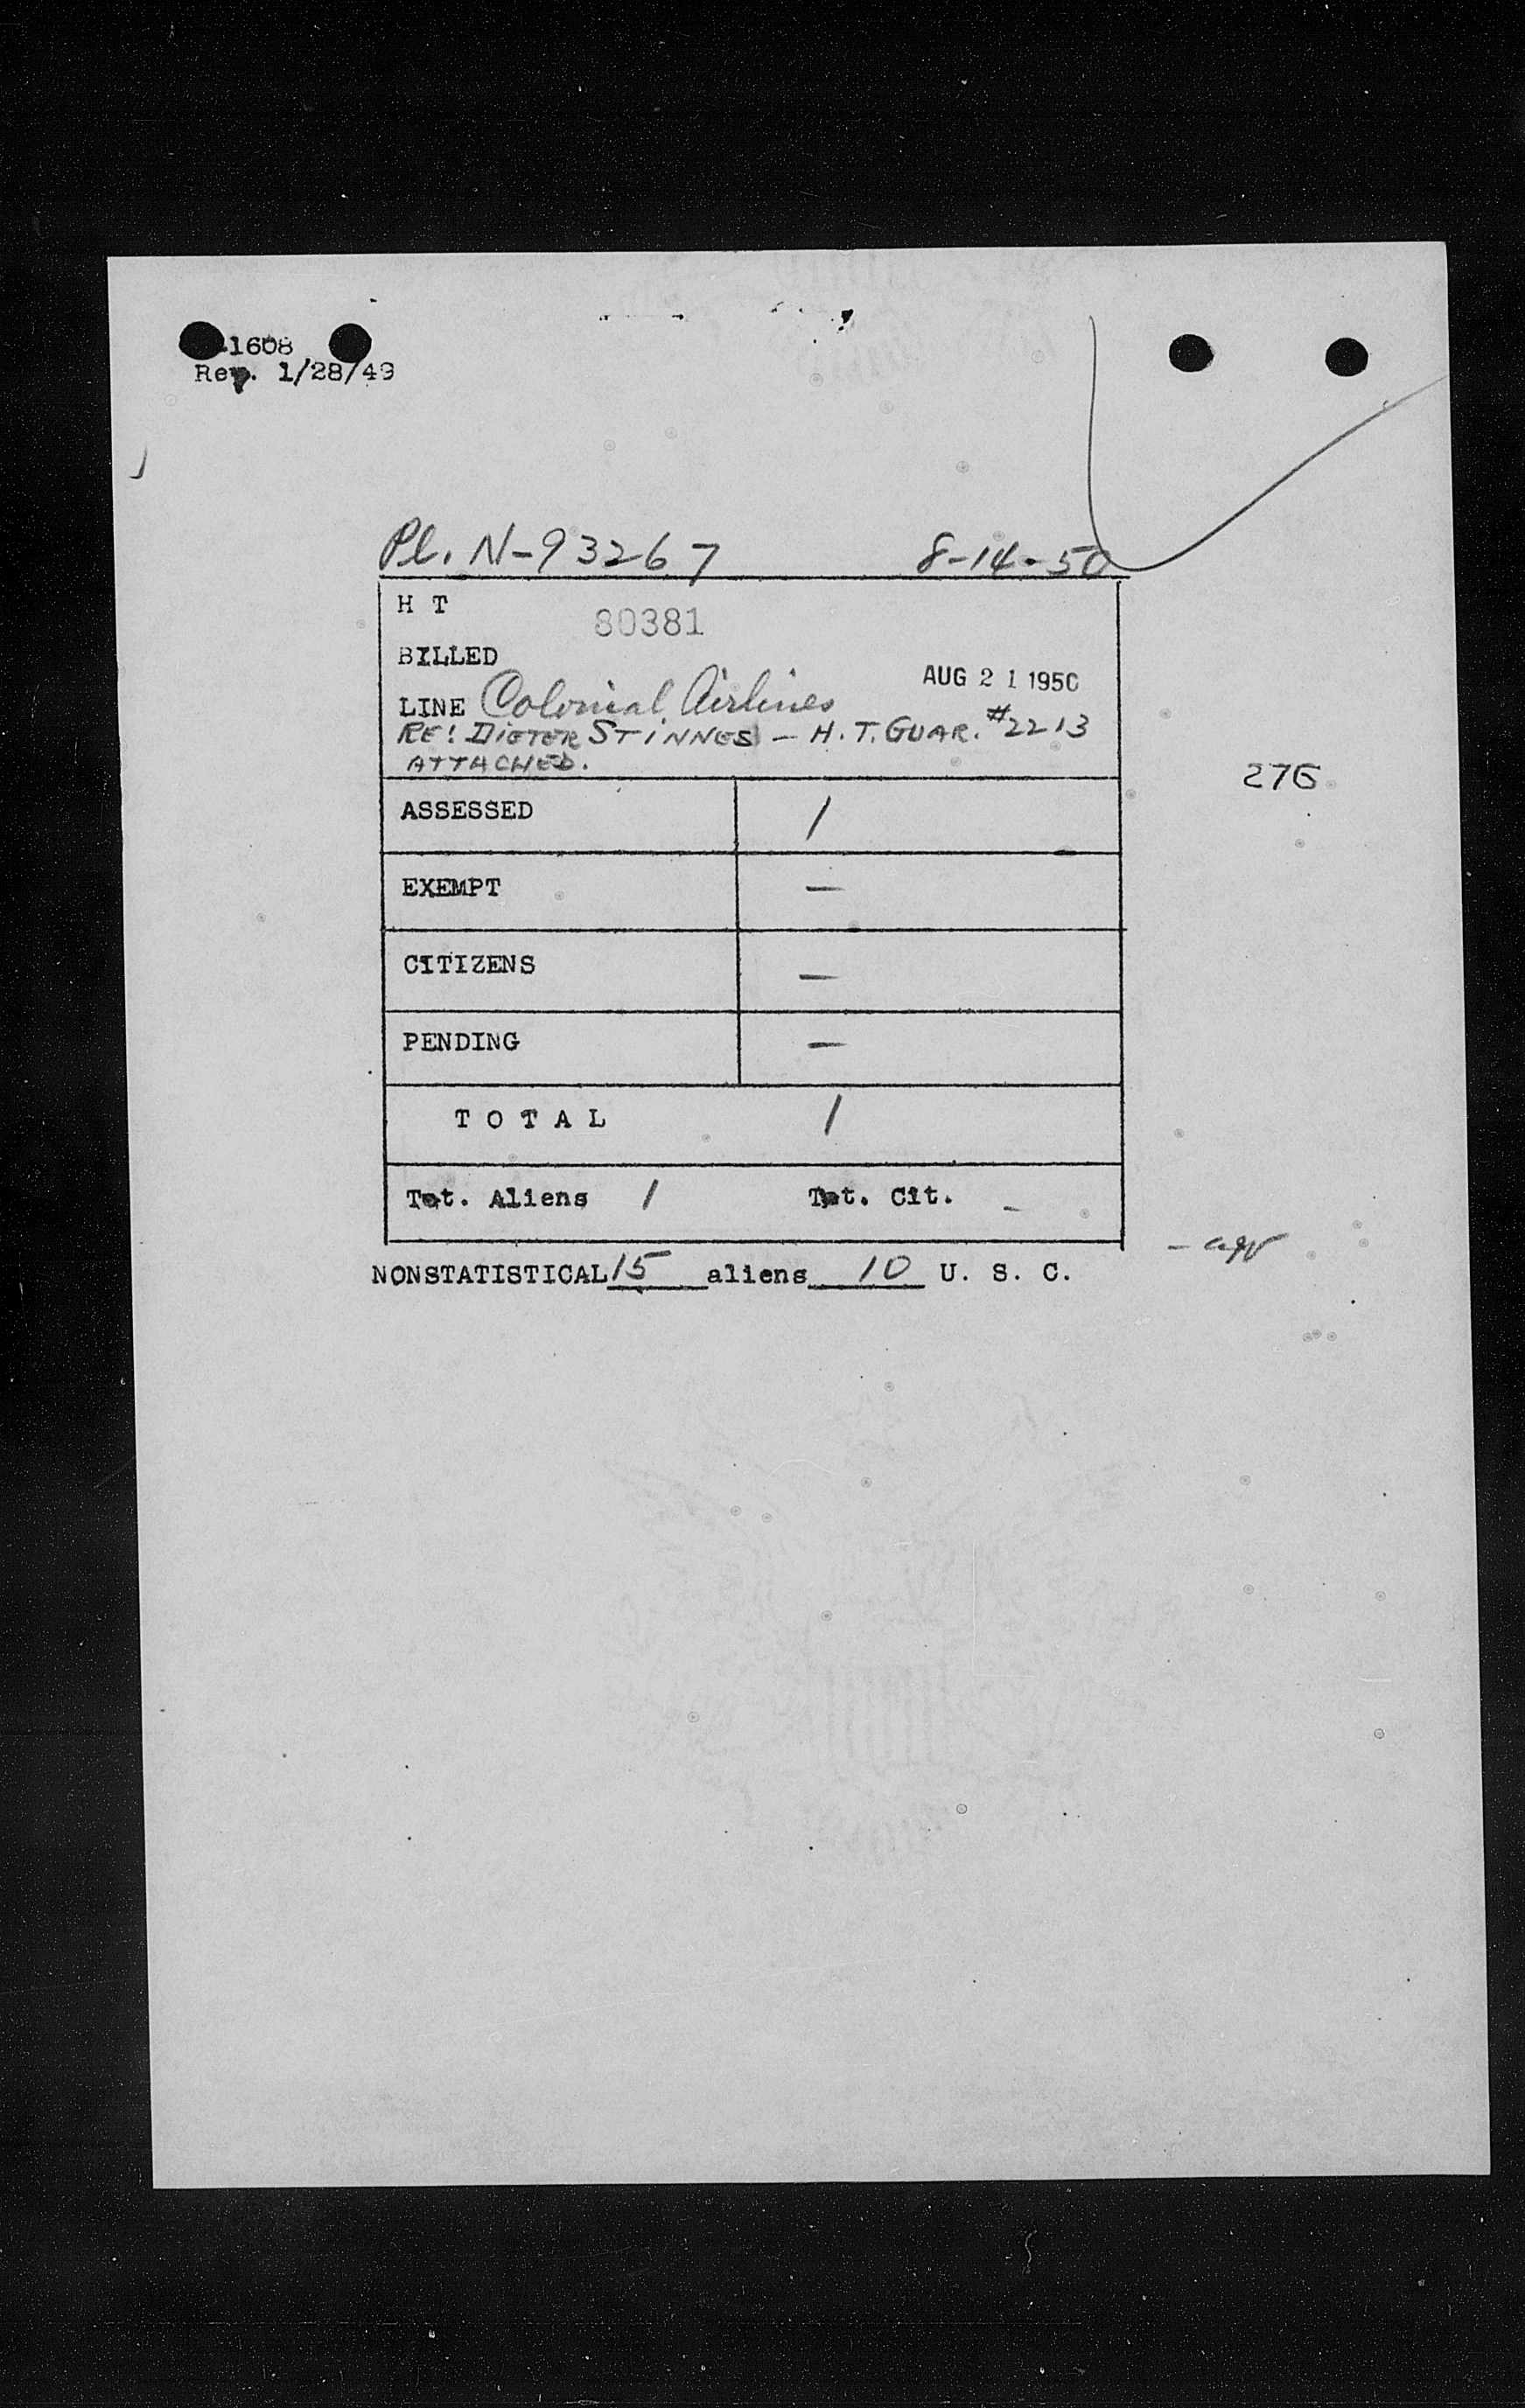 1608
Rev. 1/28/49
Pl. N-93267 8-14-50
H T
80381
BILLED
AUG 21 1950
LINE Colonial Airlines
RE: DIETER STINNES - H.T. GUAR. #2213
ATTACHED.
276
ASSESSED 1
EXEMPT —
CITIZENS —
PENDING —
T O T A L 1
Tot. Aliens 1 Tot. Cit. -
NONSTATISTICAL 15 aliens 10 U. S. C.